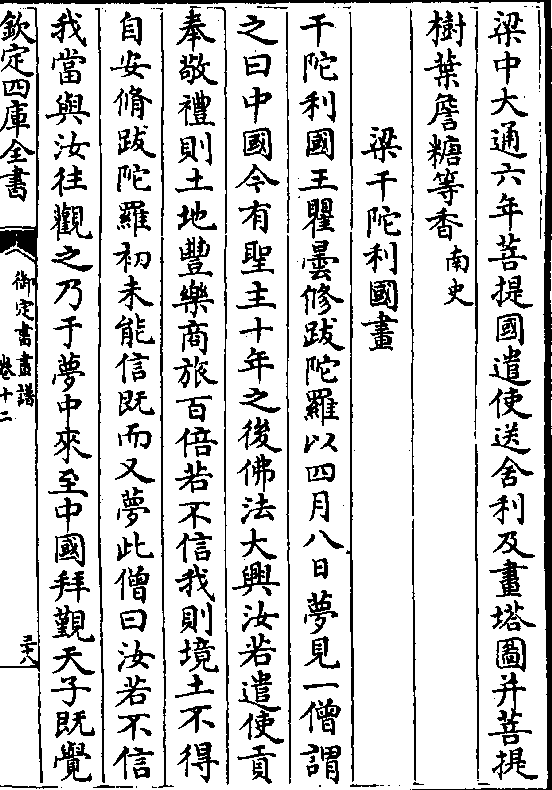 梁中大通六年菩提國遣使送舍利及畫塔圖并菩提
樹葉詹糖等香南史
梁干陀利國畫
干陀利國王瞿曇修跋陀羅以四月八日夢見一僧謂
之曰中國今有聖主十年之後佛法大興汝若遣使貢
奉敬禮則土地豐樂商旅百倍若不信我則境土不得
自安脩跋陀羅初未能信既而又夢此僧曰汝若不信
我當與汝往觀之乃于夢中來至中國拜覲天子既覺
欽定四庫全書
御定書畫譜
卷十二
三十八